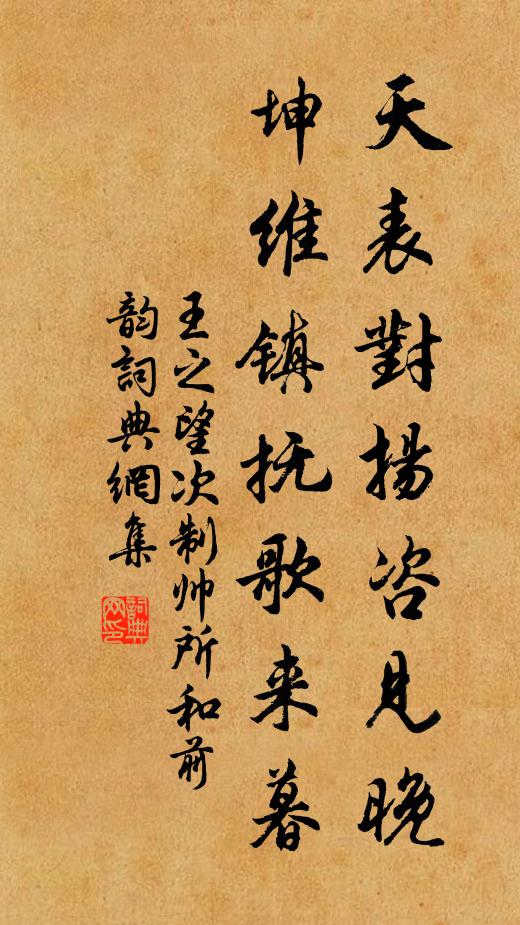 天表對揚咨見晚
坤维镇抚歌来暮
王之望次制帅所和前
韵詞典網集
詞典
网印